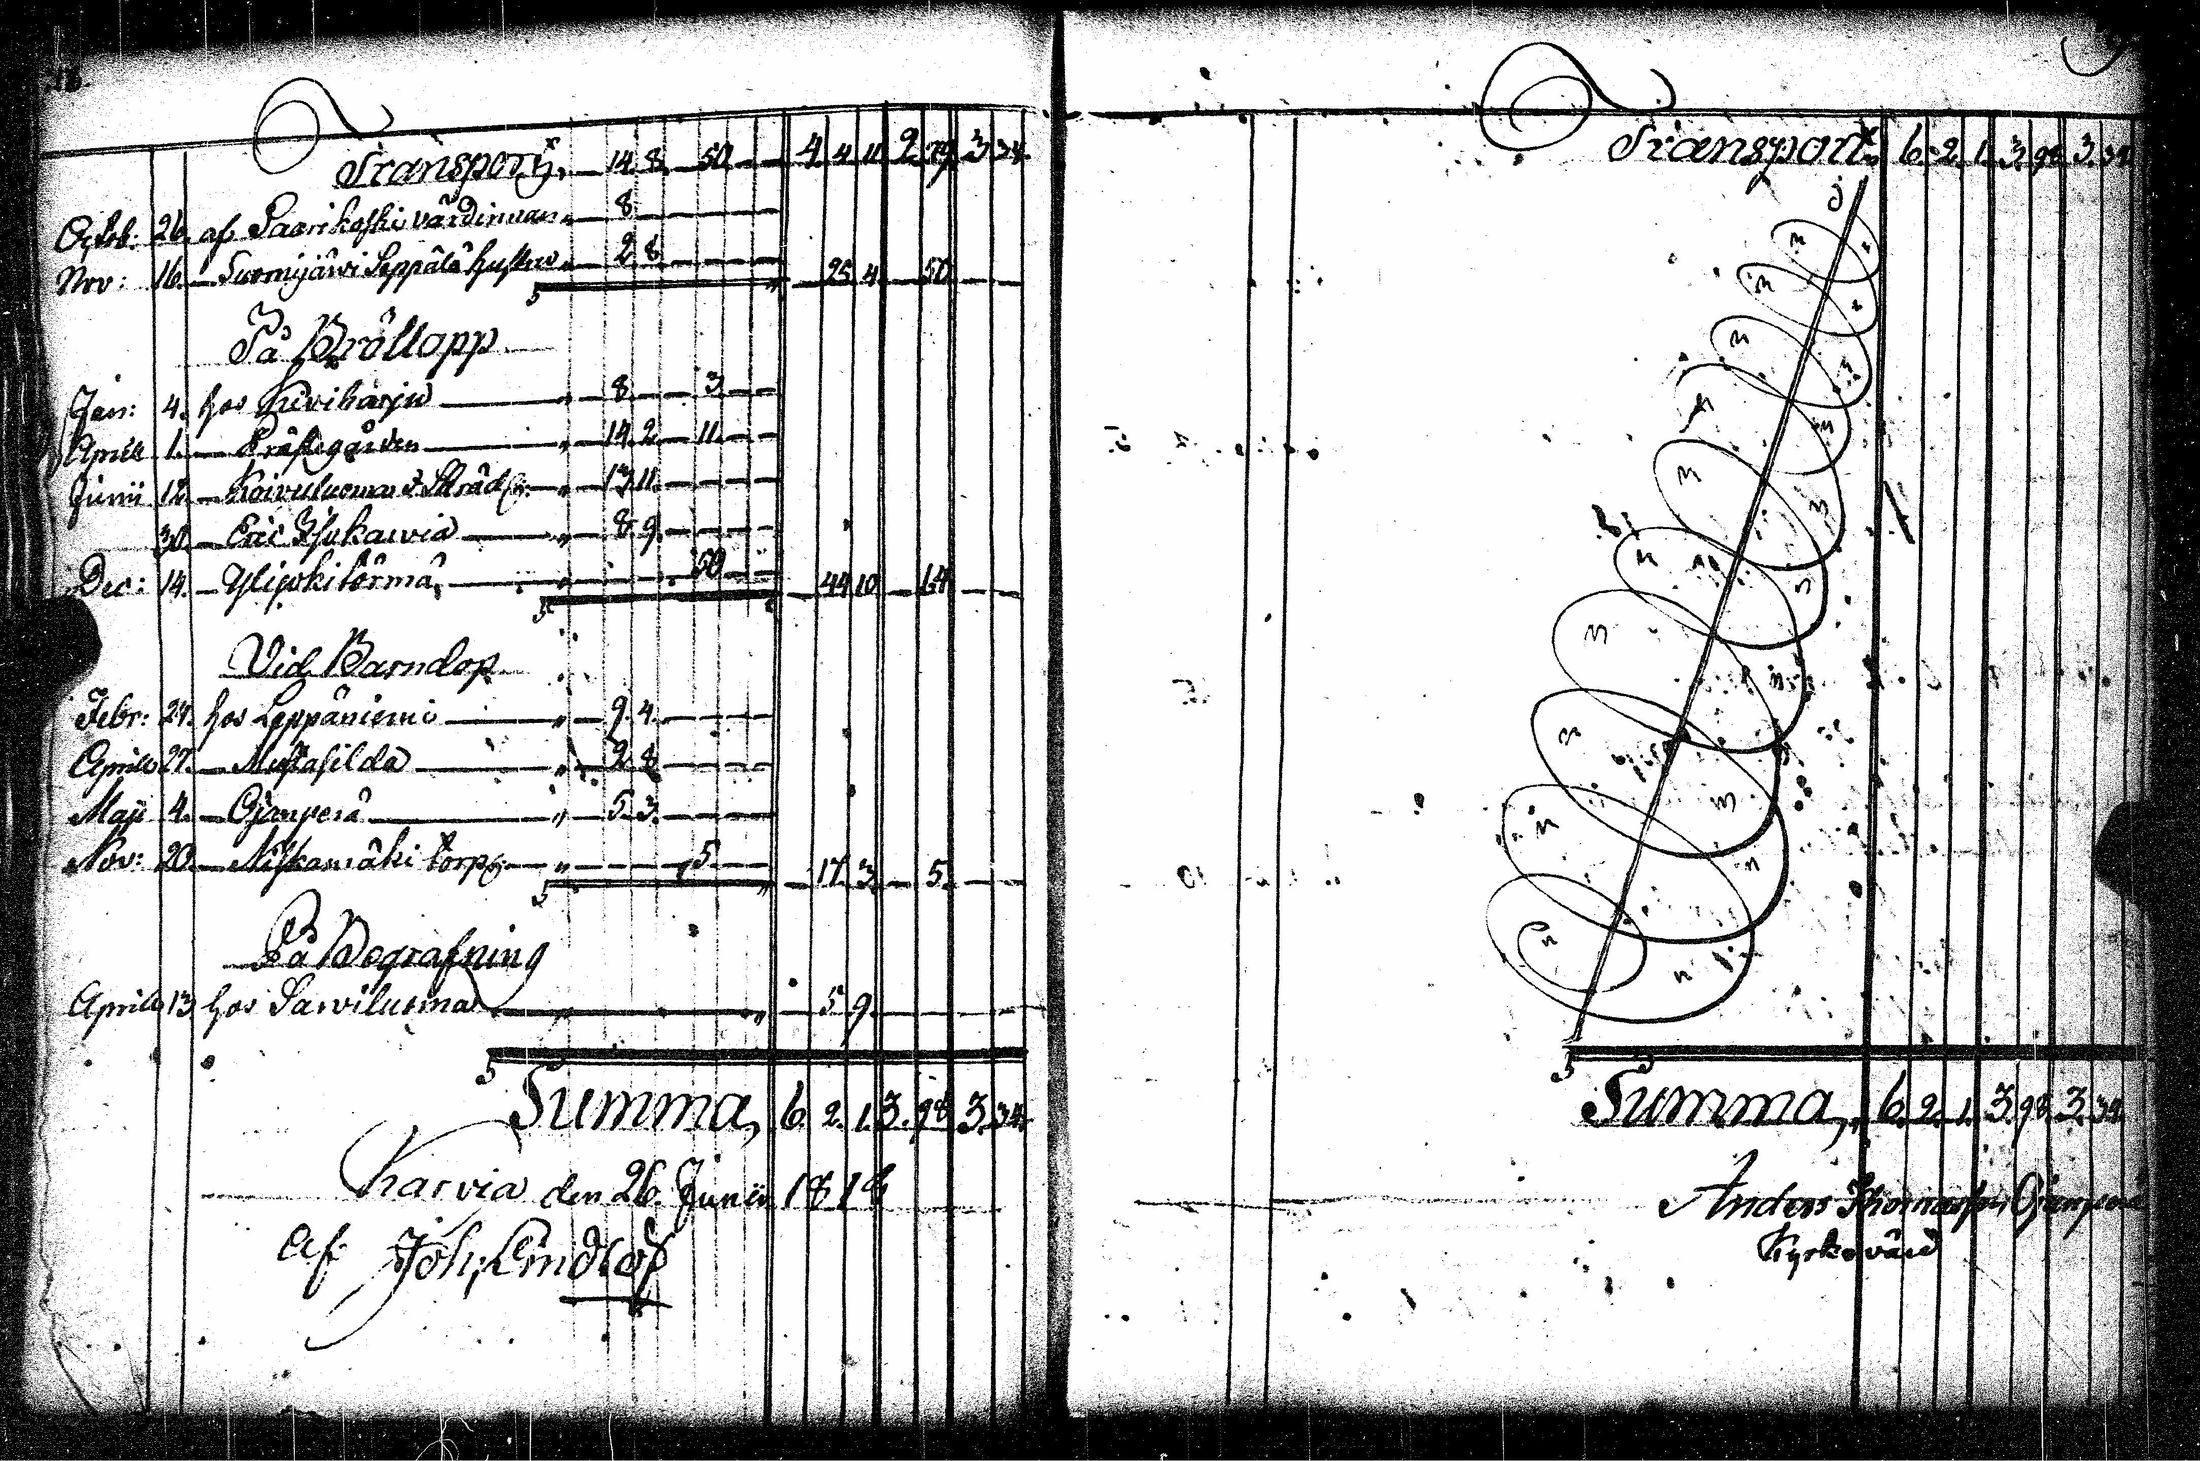 Transport, 14. 8. 50. 4. 4 11 2. 79. 3 34.
Octob: 26. af Saarikoski värdinnan 8.
Nov: 16. Suomijärvi Seppälä hustru 2 8. 25 4. 50.
På Bröllopp
Jan: 4. hos Kiviharju 8. 3.
April 1. Prästegården 14. 2. 11.
Junii 12. Koivuluoma 13 11.
30. Eric Ylikarvia 8 9.
Dec: 14. Ylijokitörmä, 50. 44 10 64
Vid Barndop
Febr: 24. hos Leppäniemi 9. 4.
April 27. Mustasilda 2. 8.
Maji 4. Ojanperä 5. 3.
Nov: 20. Niskamäki torp 5. 17 3. 5.
På Begrafning
April 13 hos Sarviluoma 5 9.
Summa, 6. 2. 1. 3. 98 3. 34.
Karvia den 26. Junii 1818
af Joh. Lindlöf
Transport, 6. 2. 1. 3. 98. 3. 34
Summa, 6. 2. 1. 3. 98. 3. 34.
Anders Thomasson Ojanperä
Kyrkovärd